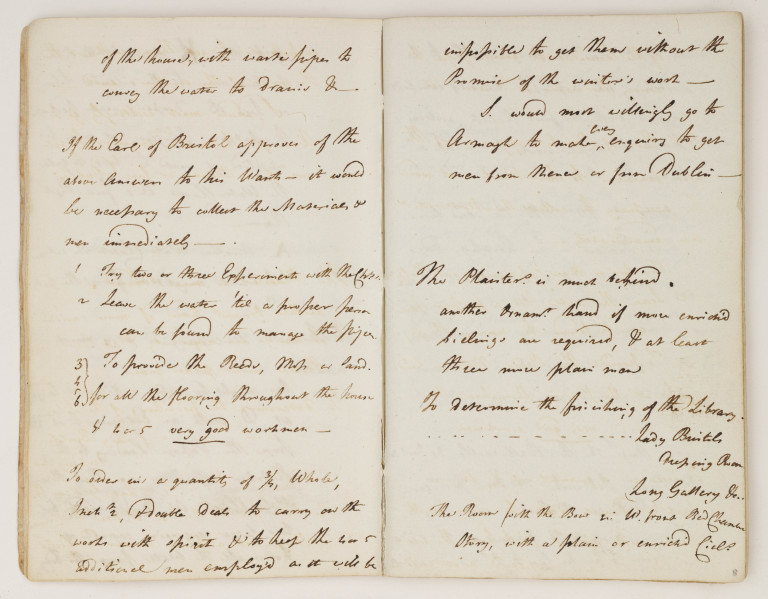 of the house, with waste pipes to
convey the water to Drains &c—
If the Earl of Bristol approves of the
above Answers to his Wants — it would
be necessary to collect the Materials &
men immediately — .
1 Try two or three Experiments with the
2 Leave the water 'til a proper person
can be found to manage the pipes
3 To provide the Reeds, Moss or Sand.
4
5
6 for all the flooring throughout the house
4 or 5 very good workmen —
To order in a quantity of Whole,
Inch ½, & double Deals to carry on the
works with spirit & to keep the 4 or 5
additional men employ'd as it will be
impossible to get them without the
Promise of the winter's work —
I would most willingly go to
Armagh to make enquiries to get
men from thence or from Dublin —
The Plaister.r is much behind.
another Ornam.t hand if more enrich'd
Cielings are required, & at least
three more plain men
To determine the finishing of the Library.
Lady Bristols
Dressing Room
Long Gallery &c..
The Room with the Bow in W. front Bed Chamber
Story, with a plain or enrich'd Ciel.g